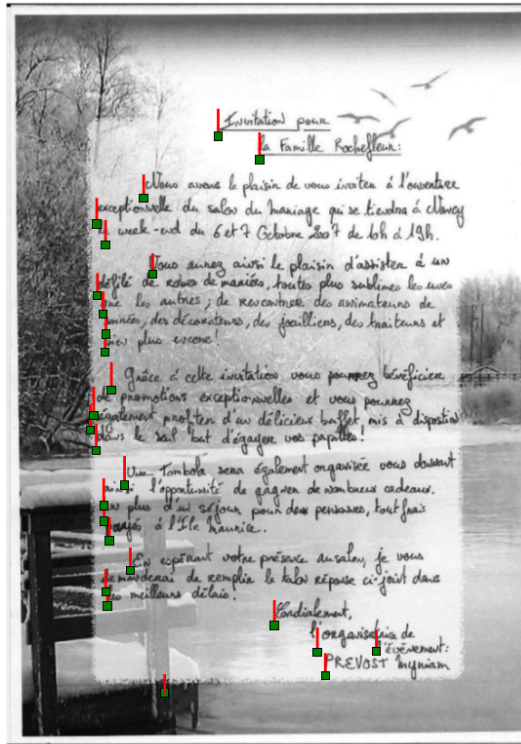 Invitation pour
la Famille Rochefleur:
Nous avons le plaisir de vous inviter à l'ouverture
exceptionnelle du salon du mariage qui se tiendra à Nancy
le week-end du 6 et 7 Octobre 2007 de 10h à 19h.
Vous aurez ainsi le plaisir d'assister à un
défilé de robes de mariées, toutes plus sublimes les unes
que les autres ; de rencontrer des animateurs de
soirées, des décorateurs, des joailliers, des traiteurs et
bien plus encore !
Grâce à cette invitation vous pourrez bénéficier
de promotions exceptionnelles et vous pourrez
également profiter d'un délicieux buffet, mis à dispostion
dans le seul but d'égayer vos papilles !
Une Tombola sera également organisée vous donnant
ainsi l'opportunité de gagner de nombreux cadeaux.
en plus d'un séjour pour deux personnes, tout frais
payés à l'Ile Maurice..
En espérant votre présence au salon, je vous
demanderai de remplir le talon réponse ci-joint dans
les meilleurs délais !
Cordialement,
l'organisatrice de
l'évènement:
PREVOST Myriam